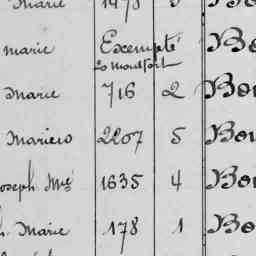 Marie 1478 5 Bo
marie Exempté Bo
20 montfort
Marie 716 2 Bou
Mariero 2207 5 Bou
Joseph Mie 1635 4 Bou
Marie 178 1 Bo